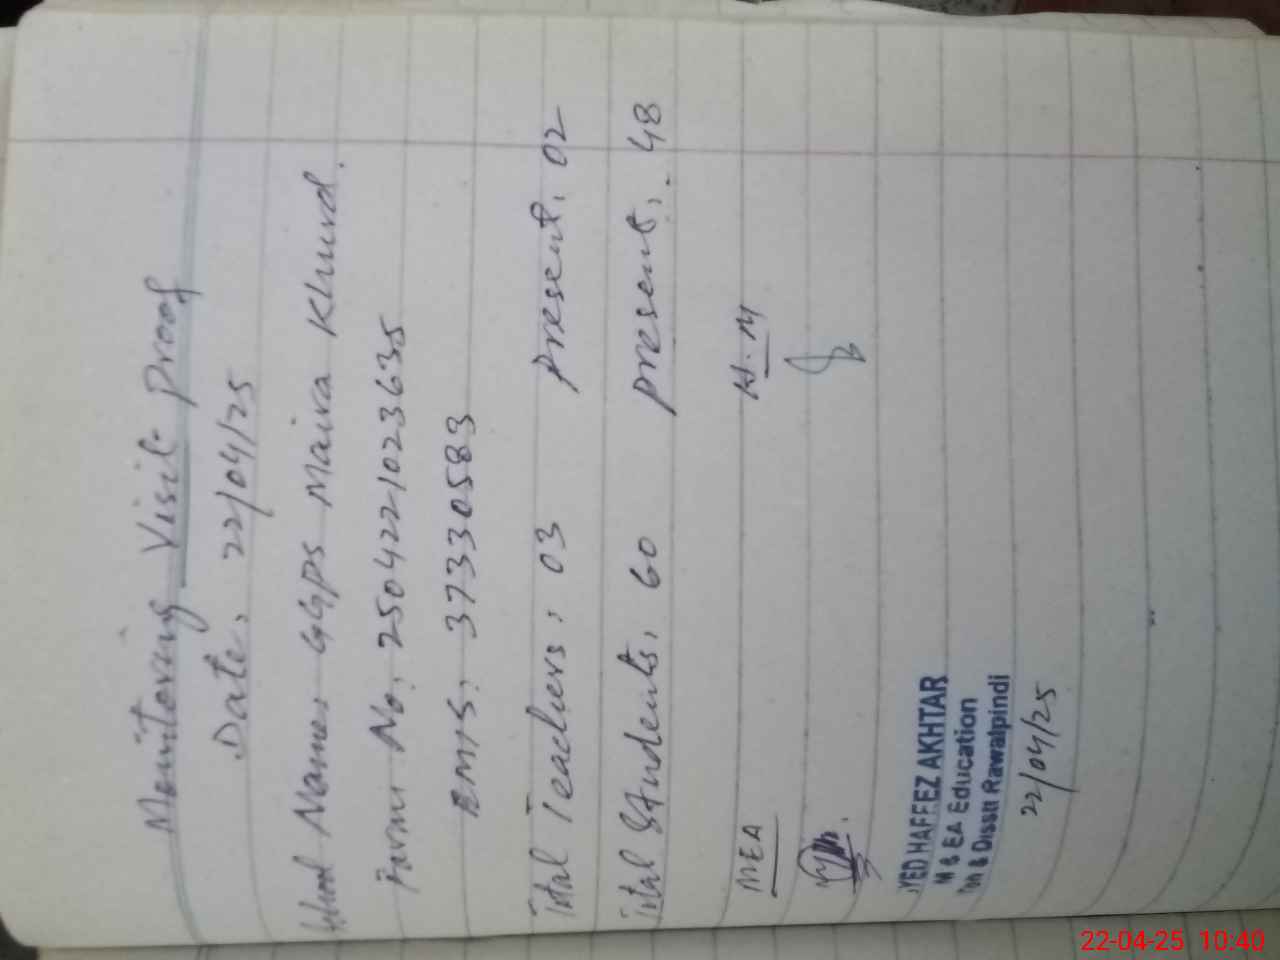 Monitoring Visit Proof
Date: 22/04/25
School Name: GGPS Maira Khurd.
Form No: 2504221023635
EMIS: 37330583
Total Teachers: 03 Present: 02
Total Students: 60 Present: 48
MEA H.M
YED HAFFEZ AKHTAR
M & EA Education
& Disstt Rawalpindi
22/04/25
22-04-25 10:40